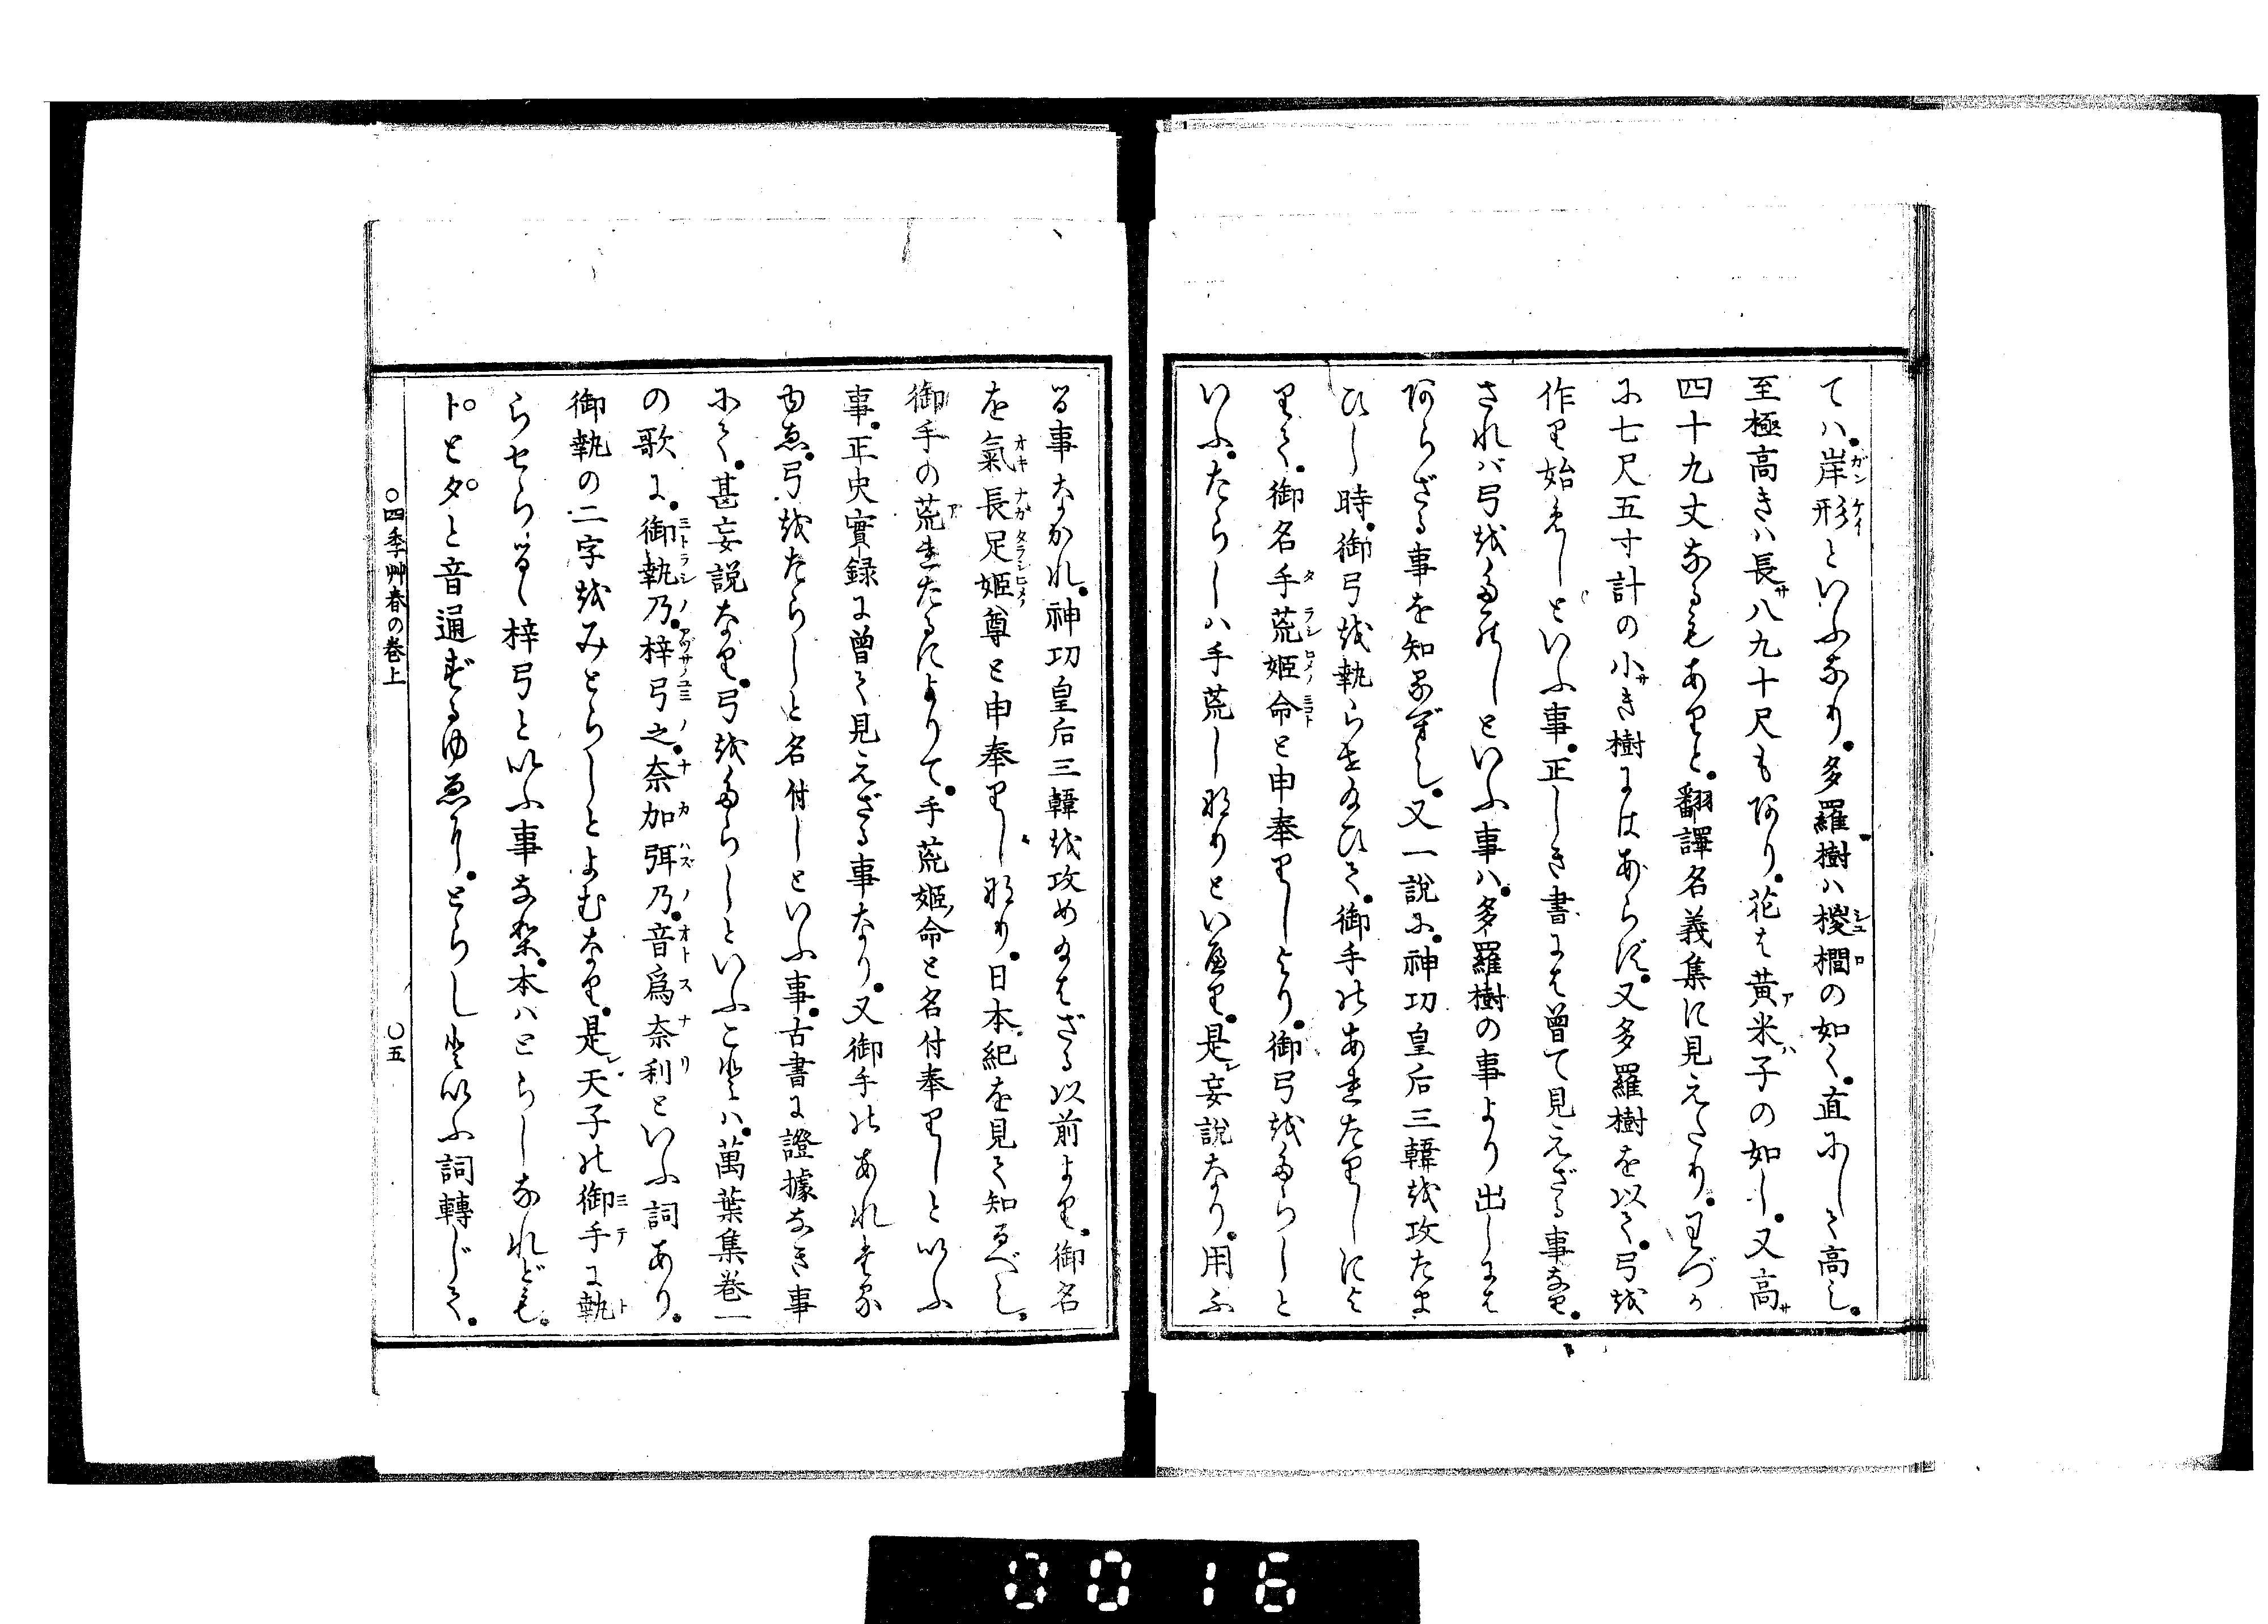 てハ岸形といふなり多羅樹ハ椶櫚の如く直にして高し
至極高きハ長八九十尺もあり花は黄米子の如し又高
四十九丈なるもありと翻譯名義集に見えたりわづか
に七尺五寸計の小き樹にはあらず又多羅樹を以て弓を
作り始めしといふ事正しき書には曾て見えざる事なり
されバ弓をたらしといふ事ハ多羅樹の事より出しには
あらざる事を知るべし又一説に神功皇后三韓を攻たま
ひし時御弓を執らせ給ひて御手のあれたりしによ
りて御名手荒姫命と申奉りしより御弓をたらしと
いふたらしハ手荒し也といへり是妄説なり用ふ
る事なかれ神功皇后三韓を攻め給はざる以前より御名
を氣長足姫尊と申奉りし也日本紀を見て知るべし
御手の荒れたるによりて手荒姫命と名付奉りしといふ
事正史實録に曾て見えざる事なり又御手のあれたる
ゆゑ弓をたらしと名付しといふ事古書に證據なき事
にて甚妄説なり弓をたらしといふことハ萬葉集巻一
の歌に御執乃梓弓之奈加弭乃音爲奈利といふ詞あり
御執の二字をみとらしとよむなり是天子の御手に執
らせらるゝ梓弓といふ事なり本ハとらしなれども
トとタと音通ずるゆゑにとらしといふ詞轉じて
○四季艸春の巻上　○五
0016